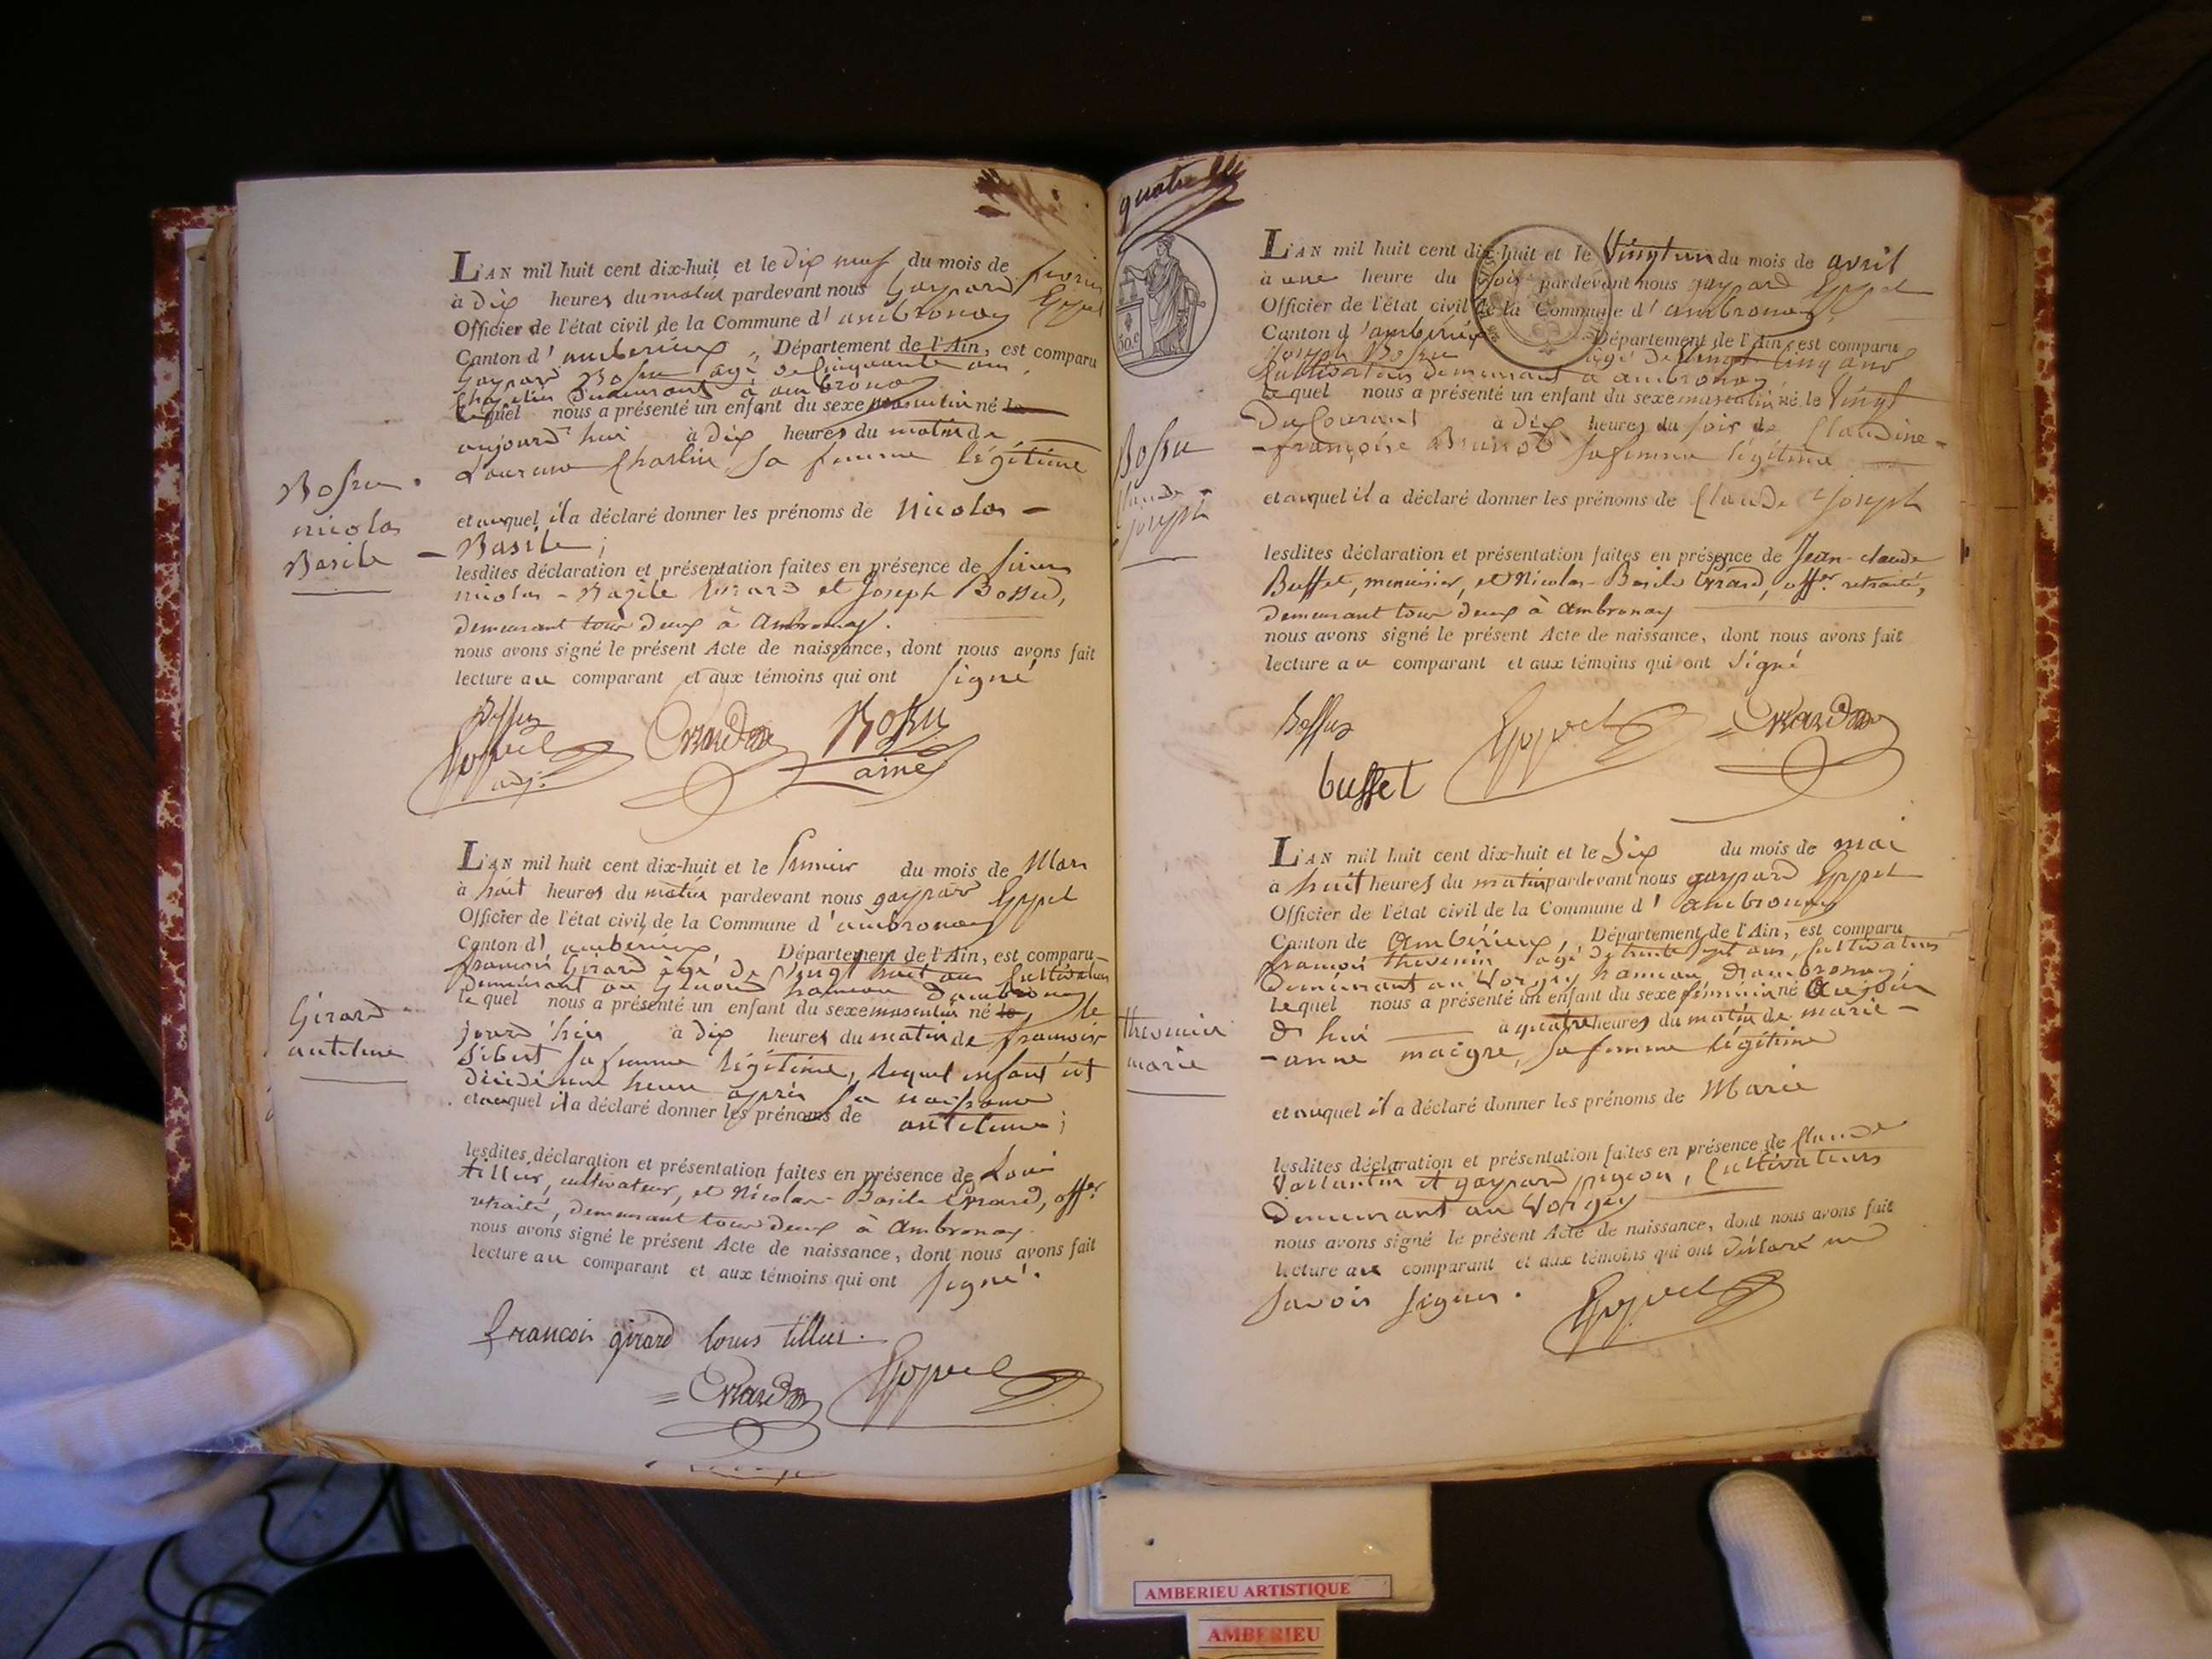 L'AN mil huit cent dix-huit et le dix neuf du mois de fevrier
à dix heures du matin pardevant nous Gaspard Goypel
Officier de l'état civil de la Commune d'ambronay
Canton d'amberieux, Département de l'Ain, est comparu
Gaspard Bossu agé de Cinquante ans,
demeurant à ambronay
lequel nous a présenté un enfant du sexe masculin né le
aujourd'hui à dix heures du matin de
Charlin sa femme légitime
Bossu
nicolas
Basile
et auquel il a déclaré donner les prénoms de Nicolas -
- Basile;
lesdites déclaration et présentation faites en présence de sieurs
nicolas - Bazile Evrard et Joseph Bossu,
demeurant tous deux à Ambronay.
nous avons signé le présent Acte de naissance, dont nous avons fait
lecture au comparant et aux témoins qui ont signé
Bossu
Goypel Evrard Bossu
adj. ainé
L'AN mil huit cent dix-huit et le premier du mois de Mars
à huit heures du matin pardevant nous gaspard Goypel
Officier de l'état civil de la Commune d'ambronay
Canton d'amberieux Département de l'Ain, est comparu-
francois Girard agé de Vingt huit ans Cultivateur
Demeurant au hameau d'ambronay
lequel nous a présenté un enfant du sexe masculin né le le
jourd'hier à dix heures du matin de francoise
Sibert sa femme légitime, lequel enfant est
décédé une heure après sa naissance
Girard
antelme
et auquel il a déclaré donner les prénoms de antelme;
lesdites déclaration et présentation faites en présence de Louis
tillier, cultivateur, et Nicolas-Basile Evrard, offer.
retraité, demeurant tous deux à Ambronay.
nous avons signé le présent Acte de naissance, dont nous avons fait
lecture au comparant et aux témoins qui ont signé.
francois girard louis tillier.
Evrard Goypel
quatre
50.c
L'AN mil huit cent dix-huit et le Vingt un du mois de avril
à une heure du soir pardevant nous gaspard Goypel
Officier de l'état civil de la Commune d'ambronay,
Canton d'amberieux Département de l'Ain, est comparu
Joseph Bossu agé de Vingt Cinq ans
Cultivateur demeurant à ambronay
lequel nous a présenté un enfant du sexe masculin né le Vingt
Du Courant à dix heures du soir de Claudine -
- françoise Brunod sa femme légitime
Bossu
Claude -
joseph
et auquel il a déclaré donner les prénoms de Claude Joseph
lesdites déclaration et présentation faites en présence de Jean-claude
Buffet, menuisier, et Nicolas-Basile Evrard, offer. retraité,
demeurant tous deux à Ambronay
nous avons signé le présent Acte de naissance, dont nous avons fait
lecture au comparant et aux témoins qui ont signé
Bossu Goypel Evrard
buffet
L'AN mil huit cent dix-huit et le Dix du mois de mai
à huit heures du matin pardevant nous gaspard Goypel
Officier de l'état civil de la Commune d'ambronay
Canton de Ambérieux, Département de l'Ain, est comparu
francois thevenin agé de trente sept ans, Cultivateur
Demeurant au Vorgey hameau d'ambronay;
lequel nous a présenté un enfant du sexe féminin né Aujour
d'hui à quatre heures du matin de marie -
- anne maigre, sa femme légitime
thevenin
marie
et auquel il a déclaré donner les prénoms de Marie
lesdites déclaration et présentation faites en présence de Claude
Vallantin et gaspard pigeon, Cultivateurs
Demeurant au Vorgey
nous avons signé le présent Acte de naissance, dont nous avons fait
lecture aux comparant et aux témoins qui ont déclaré ne
savoir signer. Goypel
AMBERIEU ARTISTIQUE
AMBERIEU